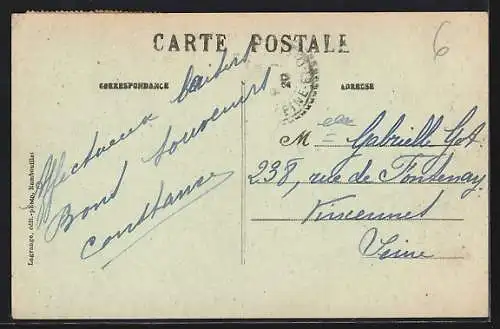 CARTE POSTALE
6
CORRESPONDANCE
ADRESSE
Affectueux baisers
Bons souvenirs
Constance
Lagrange, édit.-photo, Rambouillet
M elle Gabrielle Got
238, rue de Fontenay
Vincennes
Seine